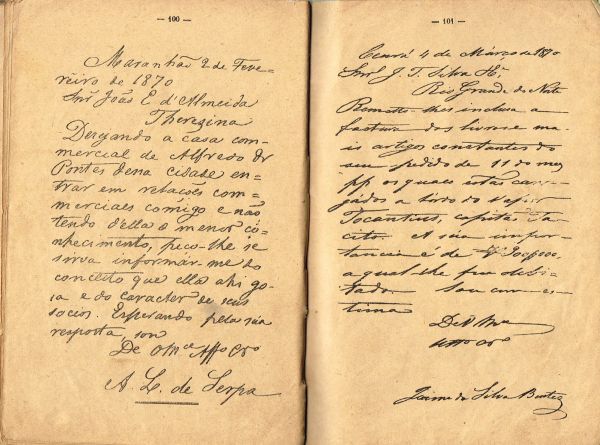 — 100 —
Maranhão 2 de Feve-
reiro de 1870
Snr João E. d'Almeida
Therezina
Dezejando a casa com-
mercial de Alfredo de
Pontes dessa cidade en-
trar em relações com-
merciaes comigo e não
tendo d'ella o menor co-
nhecimento, peço-lhe se
sirva informar-me do
conceito que ella ahi go-
sa e do caracter de seus
socios. Esperando pela sua
resposta, sou
De Vmce Affo Cro
A. L. de Serpa
— 101 —
Ceará 4 de Março de 1870
Snr J. T. Silva Fo
Rio Grande do Norte
Remetto-lhes inclusa a
factura dos livros e ma-
is artigos constantes do
seu pedido de 11 do mes
pp os quaes estão carre-
gados a bordo do Vapor
Tocantins, capitão
A sua impor-
tancia é de
a qual lhe fica debi-
tado. Sou com es-
tima
De Vmce
Atto Cro
Jaime da Silva